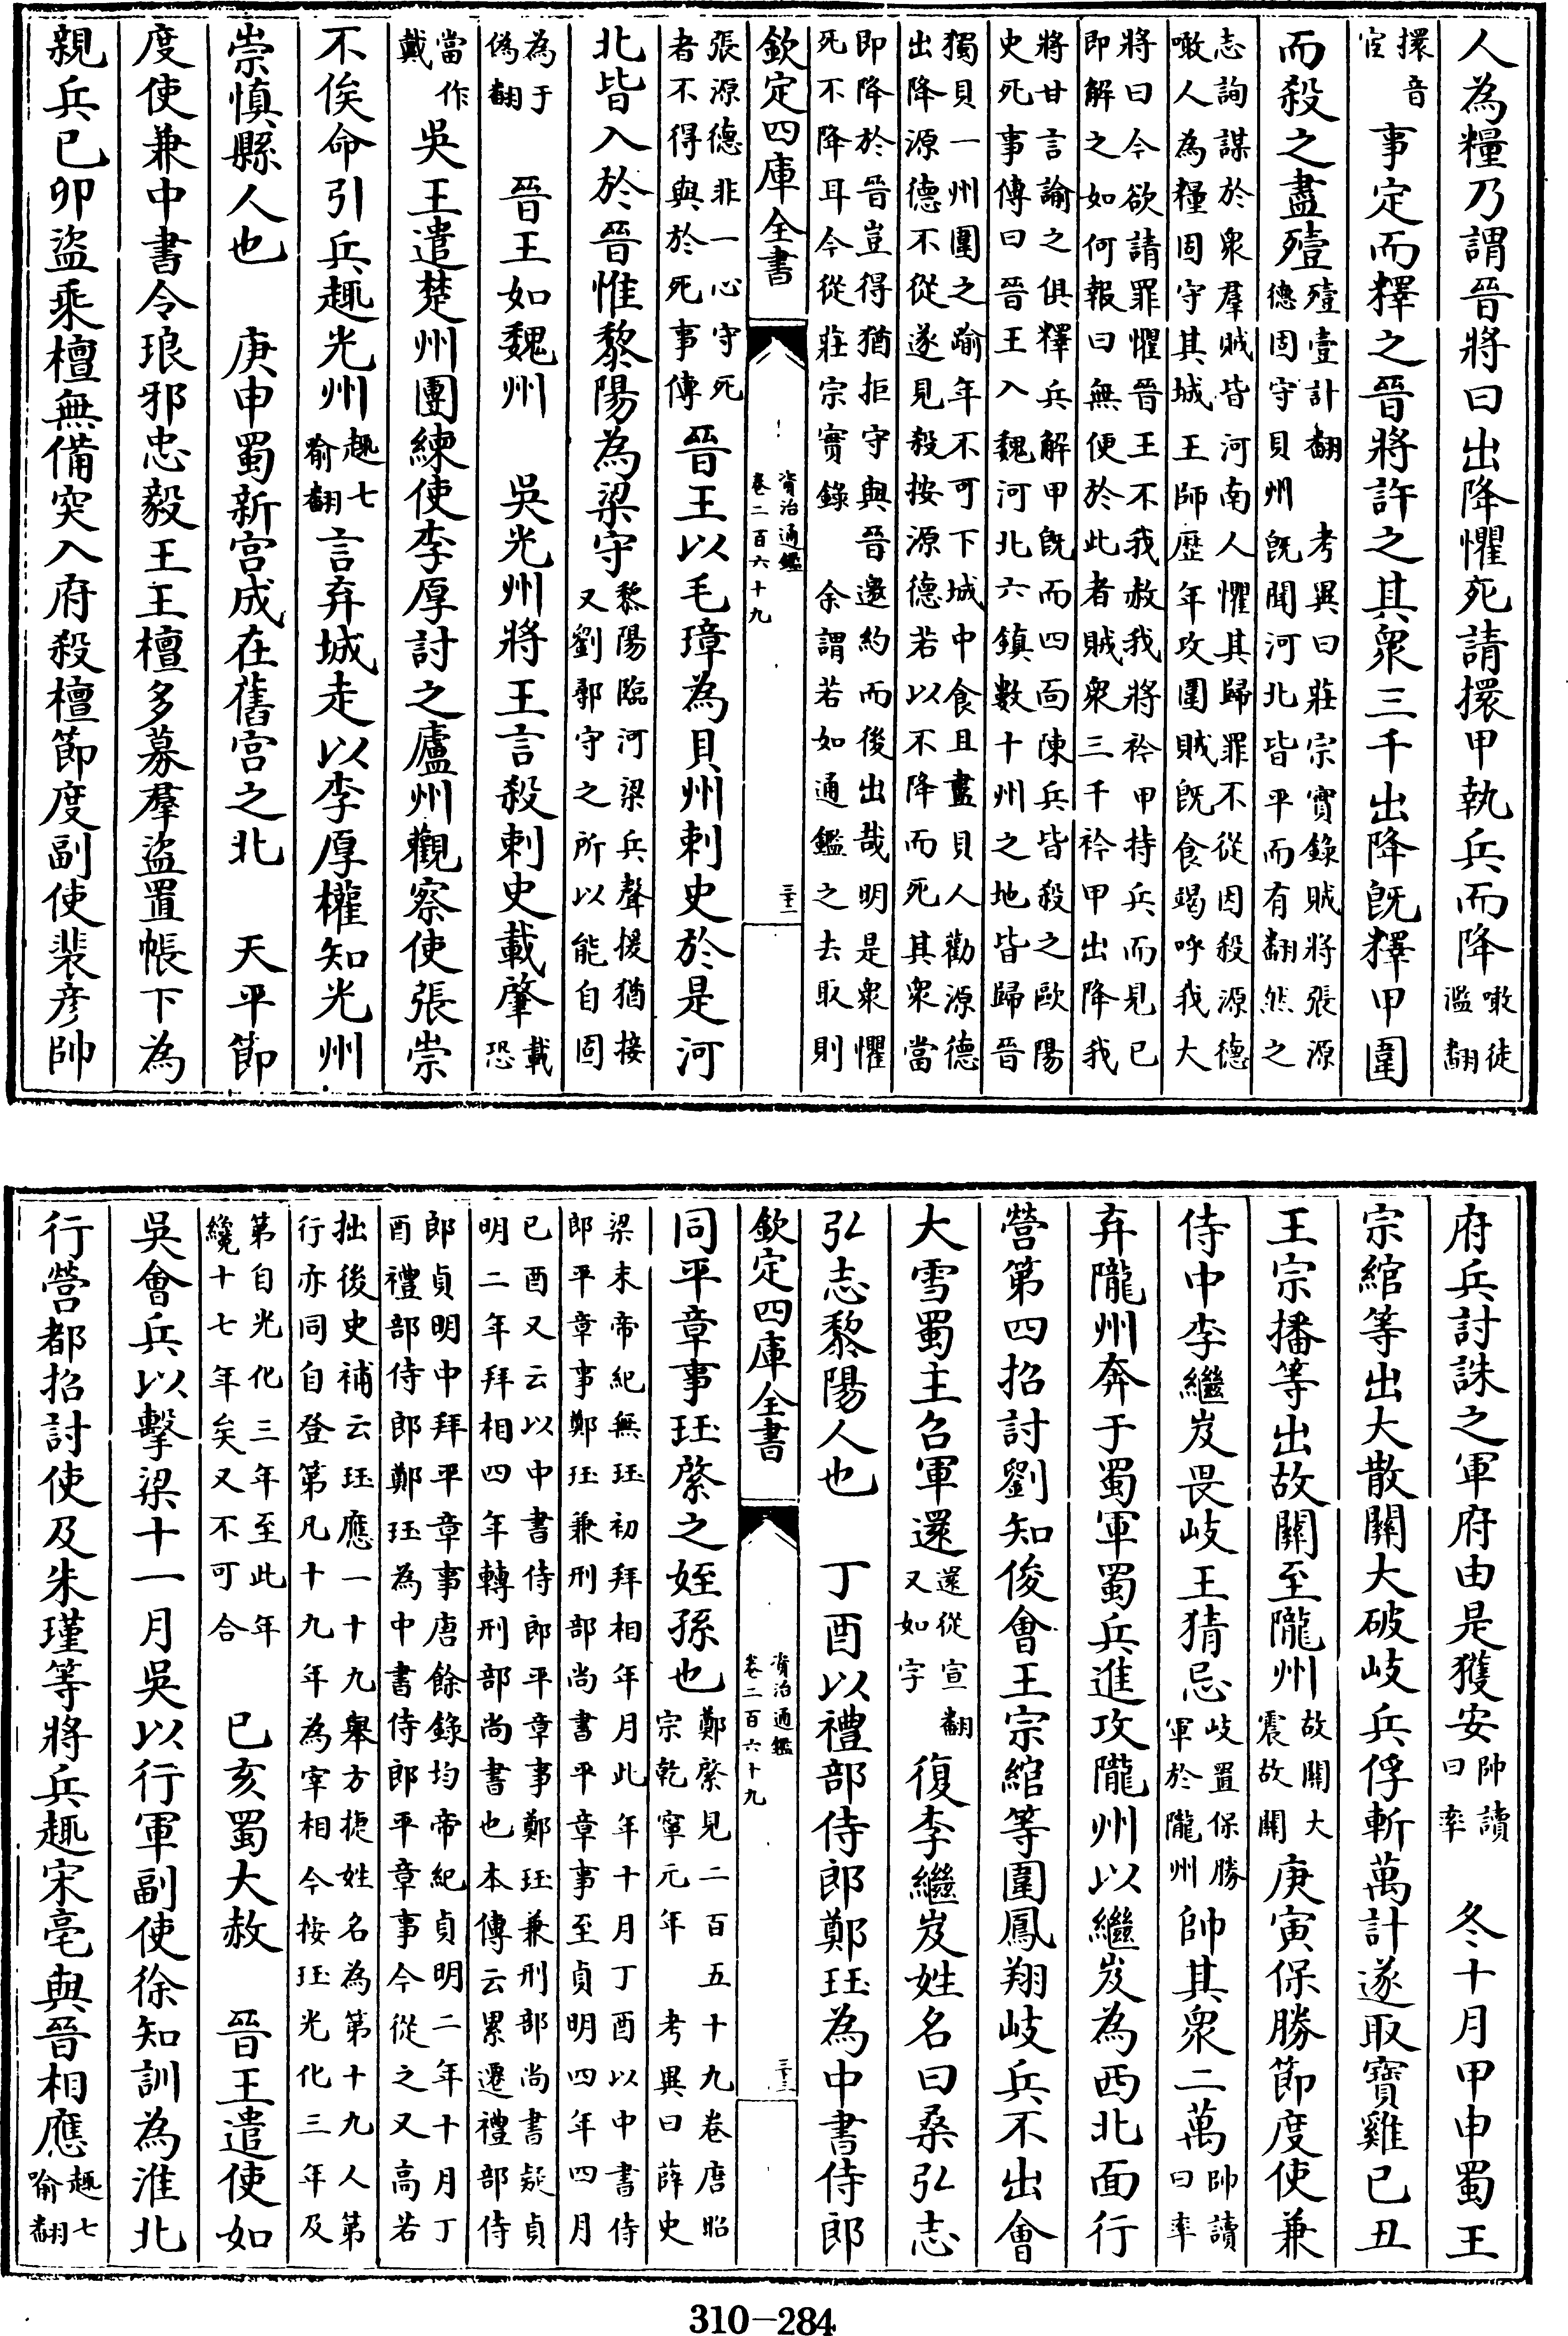 人為糧乃謂晉將曰出降懼死請擐甲執兵而降噉徒濫翻
擐音宦事定而釋之晉將許之其衆三千出降既釋甲圍
而殺之盡殪殪壹計翻 考異曰莊宗實錄賊將張源德固守貝州既聞河北皆平而有翻然之
志詢謀於衆羣賊皆河南人懼其歸罪不從因殺源德噉人為糧固守其城王師歴年攻圍賊既食竭呼我大
將曰今欲請罪懼晉王不我赦我將衿甲持兵而見已即解之如何報曰無便於此者賊衆三千衿甲出降我
將甘言諭之俱釋兵解甲既而四面陳兵皆殺之歐陽史死事傳曰晉王入魏河北六鎮數十州之地皆歸晉
獨貝一州圍之踰年不可下城中食且盡貝人勸源德出降源德不從遂見殺按源德若以不降而死其衆當
即降於晉豈得猶拒守與晉邀約而後出哉明是衆懼死不降耳今從莊宗實錄 余謂若如通鑑之去取則
欽定四庫全書 資治通鑑卷二百六十九 三十二
張源德非一心守死者不得與於死事傳晉王以毛璋為貝州刺史於是河
北皆入於晉惟黎陽為梁守黎陽臨河梁兵聲援猶接又劉鄩守之所以能自固
為于偽翻 晉王如魏州 吳光州將王言殺刺史載肇載恐
當作戴吳王遣楚州團練使李厚討之廬州觀察使張崇
不俟命引兵趣光州趣七喻翻言弃城走以李厚權知光州
崇慎縣人也 庚申蜀新宮成在舊宮之北 天平節
度使兼中書令琅邪忠毅王王檀多募羣盜置帳下為
親兵已卯盜乘檀無備突入府殺檀節度副使裴彦帥
府兵討誅之軍府由是獲安帥讀曰率 冬十月甲申蜀王
宗綰等出大散關大破岐兵俘斬萬計遂取寶雞已丑
王宗播等出故關至隴州故關大震故關庚寅保勝節度使兼
侍中李繼岌畏岐王猜忌岐置保勝軍於隴州帥其衆二萬帥讀曰率
弃隴州奔于蜀軍蜀兵進攻隴州以繼岌為西北面行
營第四招討劉知俊會王宗綰等圍鳳翔岐兵不出會
大雪蜀主召軍還還從宣翻又如字復李繼岌姓名曰桑弘志
弘志黎陽人也 丁酉以禮部侍郎鄭珏為中書侍郎
欽定四庫全書 資治通鑑卷二百六十九 三十三
同平章事珏綮之姪孫也鄭綮見二百五十九卷唐昭宗乾寧元年 考異曰薛史
梁末帝紀無珏初拜相年月此年十月丁酉以中書侍郎平章事鄭珏兼刑部尚書平章事至貞明四年四月
已酉又云以中書侍郎平章事鄭珏兼刑部尚書疑貞明二年拜相四年轉刑部尚書也本傳云累遷禮部侍
郎貞明中拜平章事唐餘錄均帝紀貞明二年十月丁酉禮部侍郎鄭珏為中書侍郎平章事今從之又高若
拙後史補云珏應一十九舉方捷姓名為第十九人第行亦同自登第凡十九年為宰相今按珏光化三年及
第自光化三年至此年纔十七年矣又不可合 已亥蜀大赦 晉王遣使如
吳會兵以擊梁十一月吳以行軍副使徐知訓為淮北
行營都招討使及朱瑾等將兵趣宋亳與晉相應趣七喻翻
310-284